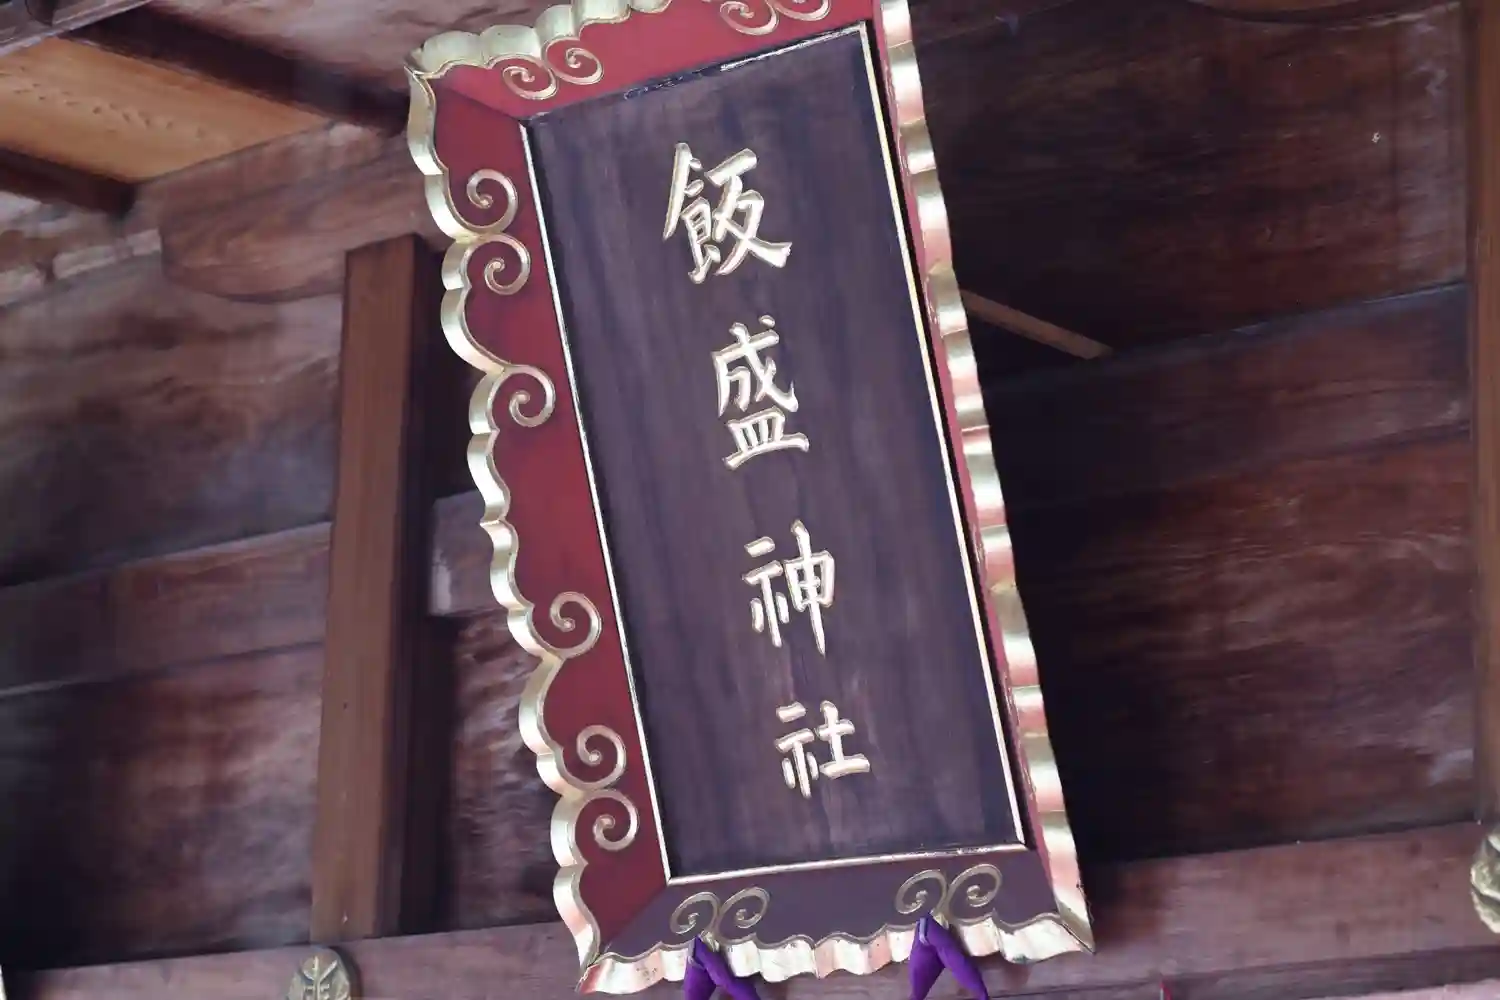 飯盛神社